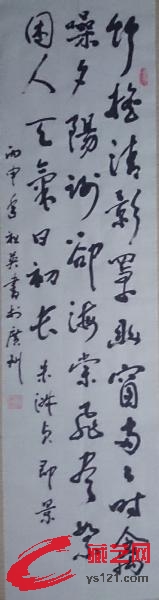 竹摇清影罩幽窗两两时禽
噪夕阳谢却海棠飞尽絮
困人天气日初长朱淑贞即景
丙申年祖英书于广州
藏艺网
ys121.com